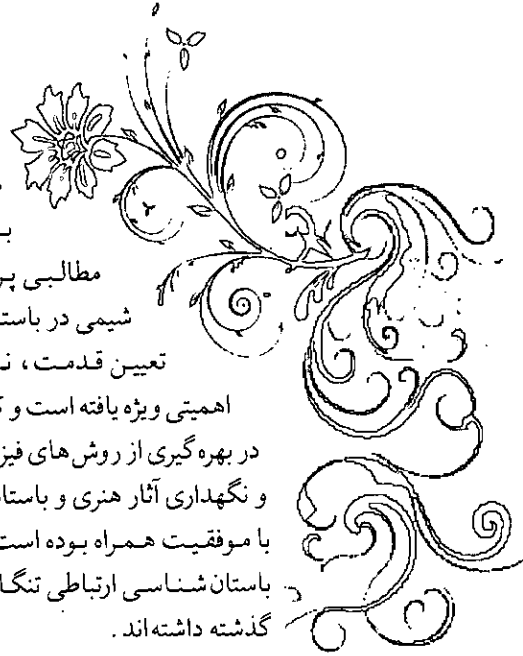 مطالبی
شیمی در
تعیین قدمت ،
اهمیتی ویژه یافته است و
در بهره‌گیری از روش‌های
و نگهداری آثار هنری و
با موفقیت همراه بوده است
باستان‌شناسی ارتباطی
گذشته داشته‌اند .